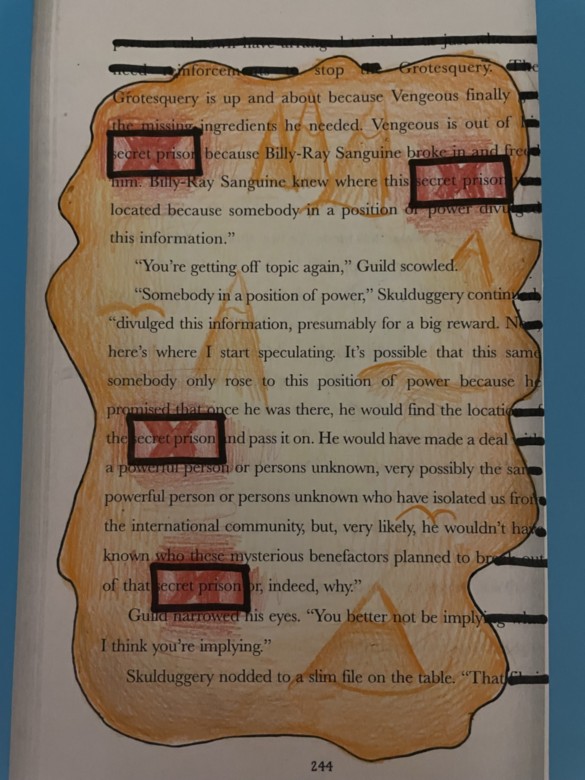 stop Grotesquery. The
Grotesquery is up and about because Vengeous finally
the missing ingredients he needed. Vengeous is out of
secret prison because Billy-Ray Sanguine broke in and freed
him. Billy-Ray Sanguine knew where this secret prison
located because somebody in a position of power divulged
this information.”
“You’re getting off topic again,” Guild scowled.
“Somebody in a position of power,” Skulduggery continued,
“divulged this information, presumably for a big reward.
here’s where I start speculating. It’s possible that this same
somebody only rose to this position of power because he
promised that once he was there, he would find the location
the secret prison and pass it on. He would have made a deal
a powerful person or persons unknown, very possibly the same
powerful person or persons unknown who have isolated us from
the international community, but, very likely, he wouldn’t have
known who these mysterious benefactors planned to break out
of that secret prison or, indeed, why.”
Guild narrowed his eyes. “You better not be implying what
I think you’re implying.”
Skulduggery nodded to a slim file on the table. “That
244